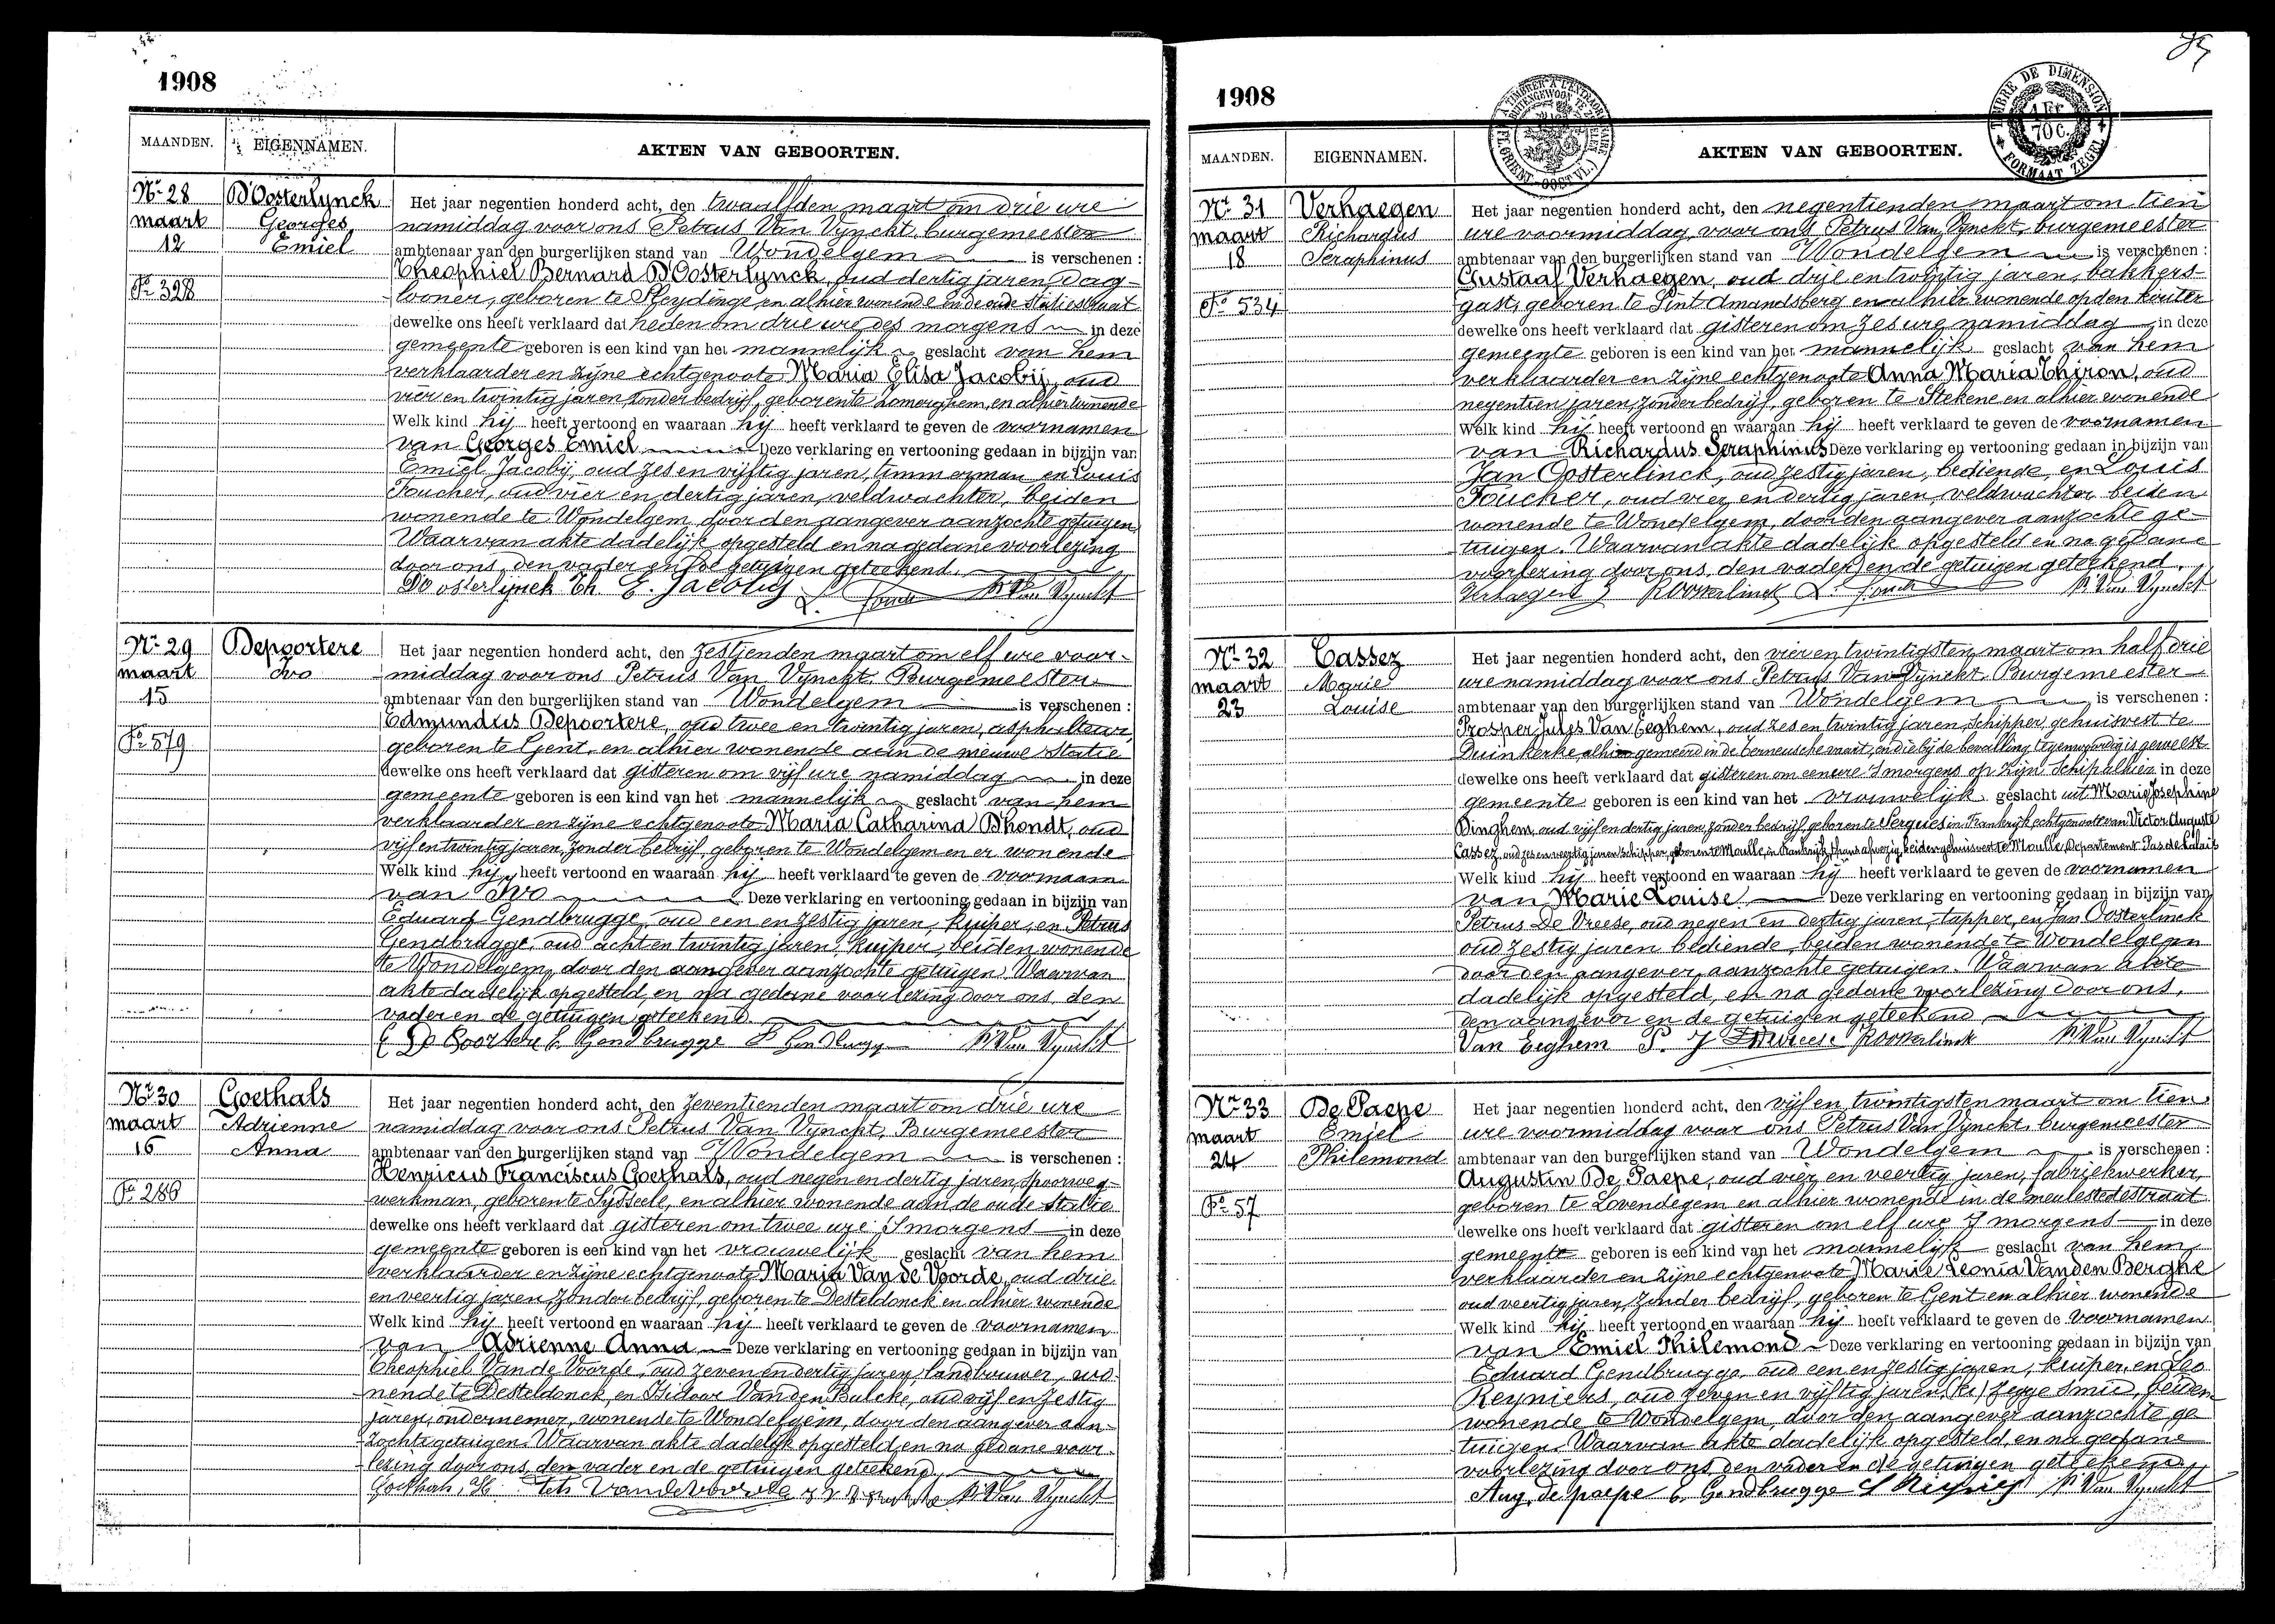 1908
MAANDEN. EIGENNAMEN. AKTEN VAN GEBOORTEN.
Nr 28
maart
12
Fo 328
D'Oosterlynck
Georges
Emiel
Het jaar negentien honderd acht, den twaalfden maart om drie ure
namiddag voor ons Petrus Van Vynckt, burgemeester
ambtenaar van den burgerlijken stand van Wondelgem is verschenen :
Theophiel Bernard D'Oosterlynck, oud dertig jaren, dag-
looner, geboren te Sleydinge en alhier wonende in de oude statiestraat
dewelke ons heeft verklaard dat heden om drie ure des morgens in deze
gemeente geboren is een kind van het mannelijk geslacht van hem
verklaarder en zijne echtgenoote Maria Elisa Jacobij, oud
vier en twintig jaren, zonder bedrijf, geboren te Somerghem, en alhier wonende
Welk kind hij heeft vertoond en waaraan hij heeft verklaard te geven de voornamen
van Georges Emiel Deze verklaring en vertooning gedaan in bijzijn van
Emiel Jacobij, oud zes en vijftig jaren, timmerman en Louis
Foucher, oud vier en dertig jaren, veldwachter, beiden
wonende te Wondelgem, door den aangever aanzochte getuigen
Waarvan akte dadelijk opgesteld en na gedane voorlezing
door ons, den vader en de getuigen geteekend.
D'Oosterlijnck Th E. Jacobij L. Fouché P Van Vynckt
Nr 29
maart
15
Fo 579
Depoortere
Ivo
Het jaar negentien honderd acht, den zestienden maart om elf ure voor-
middag voor ons Petrus Van Vynckt, Burgemeester
ambtenaar van den burgerlijken stand van Wondelgem is verschenen :
Edmundus Depoortere, oud twee en twintig jaren, asphalteur,
geboren te Gent, en alhier wonende aan de nieuwe Statie
dewelke ons heeft verklaard dat gisteren om vijf ure namiddag in deze
gemeente geboren is een kind van het mannelijk geslacht van hem
verklaarder en zijne echtgenoote Maria Catharina D'hondt, oud
vijf en twintig jaren, zonder bedrijf, geboren te Wondelgem en er wonende
Welk kind hij heeft vertoond en waaraan hij heeft verklaard te geven de voornaam
van Ivo Deze verklaring en vertooning gedaan in bijzijn van
Eduard Gendbrugge, oud een en zestig jaren, kuiper, en Petrus
Gendbrugge, oud acht en twintig jaren, kuiper, beiden wonende
te Wondelgem, door den aangever aanzochte getuigen. Waarvan
akte dadelijk opgesteld, en na gedane voorlezing door ons, den
vader en de getuigen geteekend.
E De Poortere E. Gendbrugge P Gendbrugge P Van Vynckt
Nr 30
maart
16
Fo 286
Goethals
Adrienne
Anna
Het jaar negentien honderd acht, den zeventienden maart om drie ure
namiddag voor ons Petrus Van Vynckt, Burgemeester
ambtenaar van den burgerlijken stand van Wondelgem is verschenen :
Henricus Franciscus Goethals, oud negen en dertig jaren, spoorweg-
werkman, geboren te Sysseele, en alhier wonende aan de oude statie
dewelke ons heeft verklaard dat gisteren om twee ure 's morgens in deze
gemeente geboren is een kind van het vrouwelijk geslacht van hem
verklaarder en zijne echtgenoote Maria Van de Voorde, oud drie
en veertig jaren, zonder bedrijf, geboren te Desteldonck en alhier wonende
Welk kind hij heeft vertoond en waaraan hij heeft verklaard te geven de voornamen
van Adrienne Anna Deze verklaring en vertooning gedaan in bijzijn van
Theophiel Van de Voorde, oud zeven en dertig jaren, landbouwer, wo-
nende te Desteldonck, en Isidoor Vanden Bulcke, oud vijf en zestig
jaren, ondernemer, wonende te Wondelgem, door den aangever aan-
zochte getuigen. Waarvan akte dadelijk opgesteld, en na gedane voor-
lezing door ons, den vader en de getuigen geteekend.
Goethals, H Teh Vandevoorde P Van Vynckt
1908
TIMBRE DE DIMENSION
1 Fr
70 C.
FORMAAT ZEGEL
MAANDEN. EIGENNAMEN. AKTEN VAN GEBOORTEN.
Nr 31
maart
18
Fo 534
Verhaegen
Richardus
Seraphinus
Het jaar negentien honderd acht, den negentienden maart om tien
ure voormiddag, voor ons Petrus Van Vynckt, burgemeester
ambtenaar van den burgerlijken stand van Wondelgem is verschenen :
Gustaaf Verhaegen, oud drie en twintig jaren, bakkers-
gast, geboren te Sint Amandsberg en alhier wonende op den kouter
dewelke ons heeft verklaard dat gisteren om zes ure namiddag in deze
gemeente geboren is een kind van het mannelijk geslacht van hem
verklaarder en zijne echtgenoote Anna Maria Thiron, oud
negentien jaren, zonder bedrijf, geboren te Stekene en alhier wonende
Welk kind hij heeft vertoond en waaraan hij heeft verklaard te geven de voornamen
van Richardus Seraphinus Deze verklaring en vertooning gedaan in bijzijn van
Jan Oosterlinck, oud zestig jaren, bediende, en Louis
Foucher, oud vier en dertig jaren, veldwachter, beiden
wonende te Wondelgem, door den aangever aanzochte ge-
tuigen. Waarvan akte dadelijk opgesteld en na gedane
voorlezing door ons, den vader en de getuigen geteekend.
Verhaegen G JOoosterlinck L. Fouché P Van Vynckt
Nr 32
maart
23
Cassez
Marie
Louise
Het jaar negentien honderd acht, den vier en twintigsten maart om half drie
ure namiddag voor ons Petrus Van Vynckt, Burgemeester
ambtenaar van den burgerlijken stand van Wondelgem is verschenen :
Prosper Jules Van Eeghem, oud zes en twintig jaren, Schipper, gehuisvest te
Duinkerke, alhier gemeerd in de Terneusche vaart, en die bij de bevalling tegenwoordig is geweest
dewelke ons heeft verklaard dat gisteren om een ure 's morgens op zijn Schip alhier in deze
gemeente geboren is een kind van het vrouwelijk geslacht uit Marie Josephine
Dinghem, oud vijf en dertig jaren, zonder bedrijf, geboren te Serques in Frankrijk, echtgenoote van Victor Auguste
Cassez, oud zes en veertig jaren, Schipper, geboren te Moulle, in Frankrijk, thans afwezig, beiden gehuisvest te Moulle, Departement Pas de Calais
Welk kind hij heeft vertoond en waaraan hij heeft verklaard te geven de voornamen
van Marie Louise Deze verklaring en vertooning gedaan in bijzijn van
Petrus De Vreese, oud negen en dertig jaren, tapper, en Jan Oosterlinck
oud zestig jaren, bediende, beiden wonende te Wondelgem
door den aangever aanzochte getuigen. Waarvan akte
dadelijk opgesteld, en na gedane voorlezing door ons,
den aangever en de getuigen geteekend
Van Eeghem P. J Devreese JOoosterlinck P Van Vynckt
Nr 33
maart
24
Fo 57
De Paepe
Emiel
Philemond
Het jaar negentien honderd acht, den vijf en twintigsten maart om tien
ure voormiddag voor ons Petrus Van Vynckt, burgemeester
ambtenaar van den burgerlijken stand van Wondelgem is verschenen :
Augustin De Paepe, oud vier en veertig jaren, fabriekwerker,
geboren te Lovendegem en alhier wonende in de meulestedestraat
dewelke ons heeft verklaard dat gisteren om elf ure 's morgens in deze
gemeente geboren is een kind van het mannelijk geslacht van hem
verklaarder en zijne echtgenoote Marie Leonia Vanden Berghe
oud veertig jaren, zonder bedrijf, geboren te Gent en alhier wonende
Welk kind hij heeft vertoond en waaraan hij heeft verklaard te geven de voornamen
van Emiel Philemond Deze verklaring en vertooning gedaan in bijzijn van
Eduard Gendbrugge, oud een en zestig jaren, kuiper, en Leo
Reyniers, oud zeven en vijftig jaren, (ku) zegge smid, beiden
wonende te Wondelgem, door den aangever aanzochte ge
tuigen. Waarvan akte dadelijk opgesteld, en na gedane
voorlezing door ons den vader en de getuigen geteekend
Aug, de paepe E. Gendbrugge P Van Vynckt